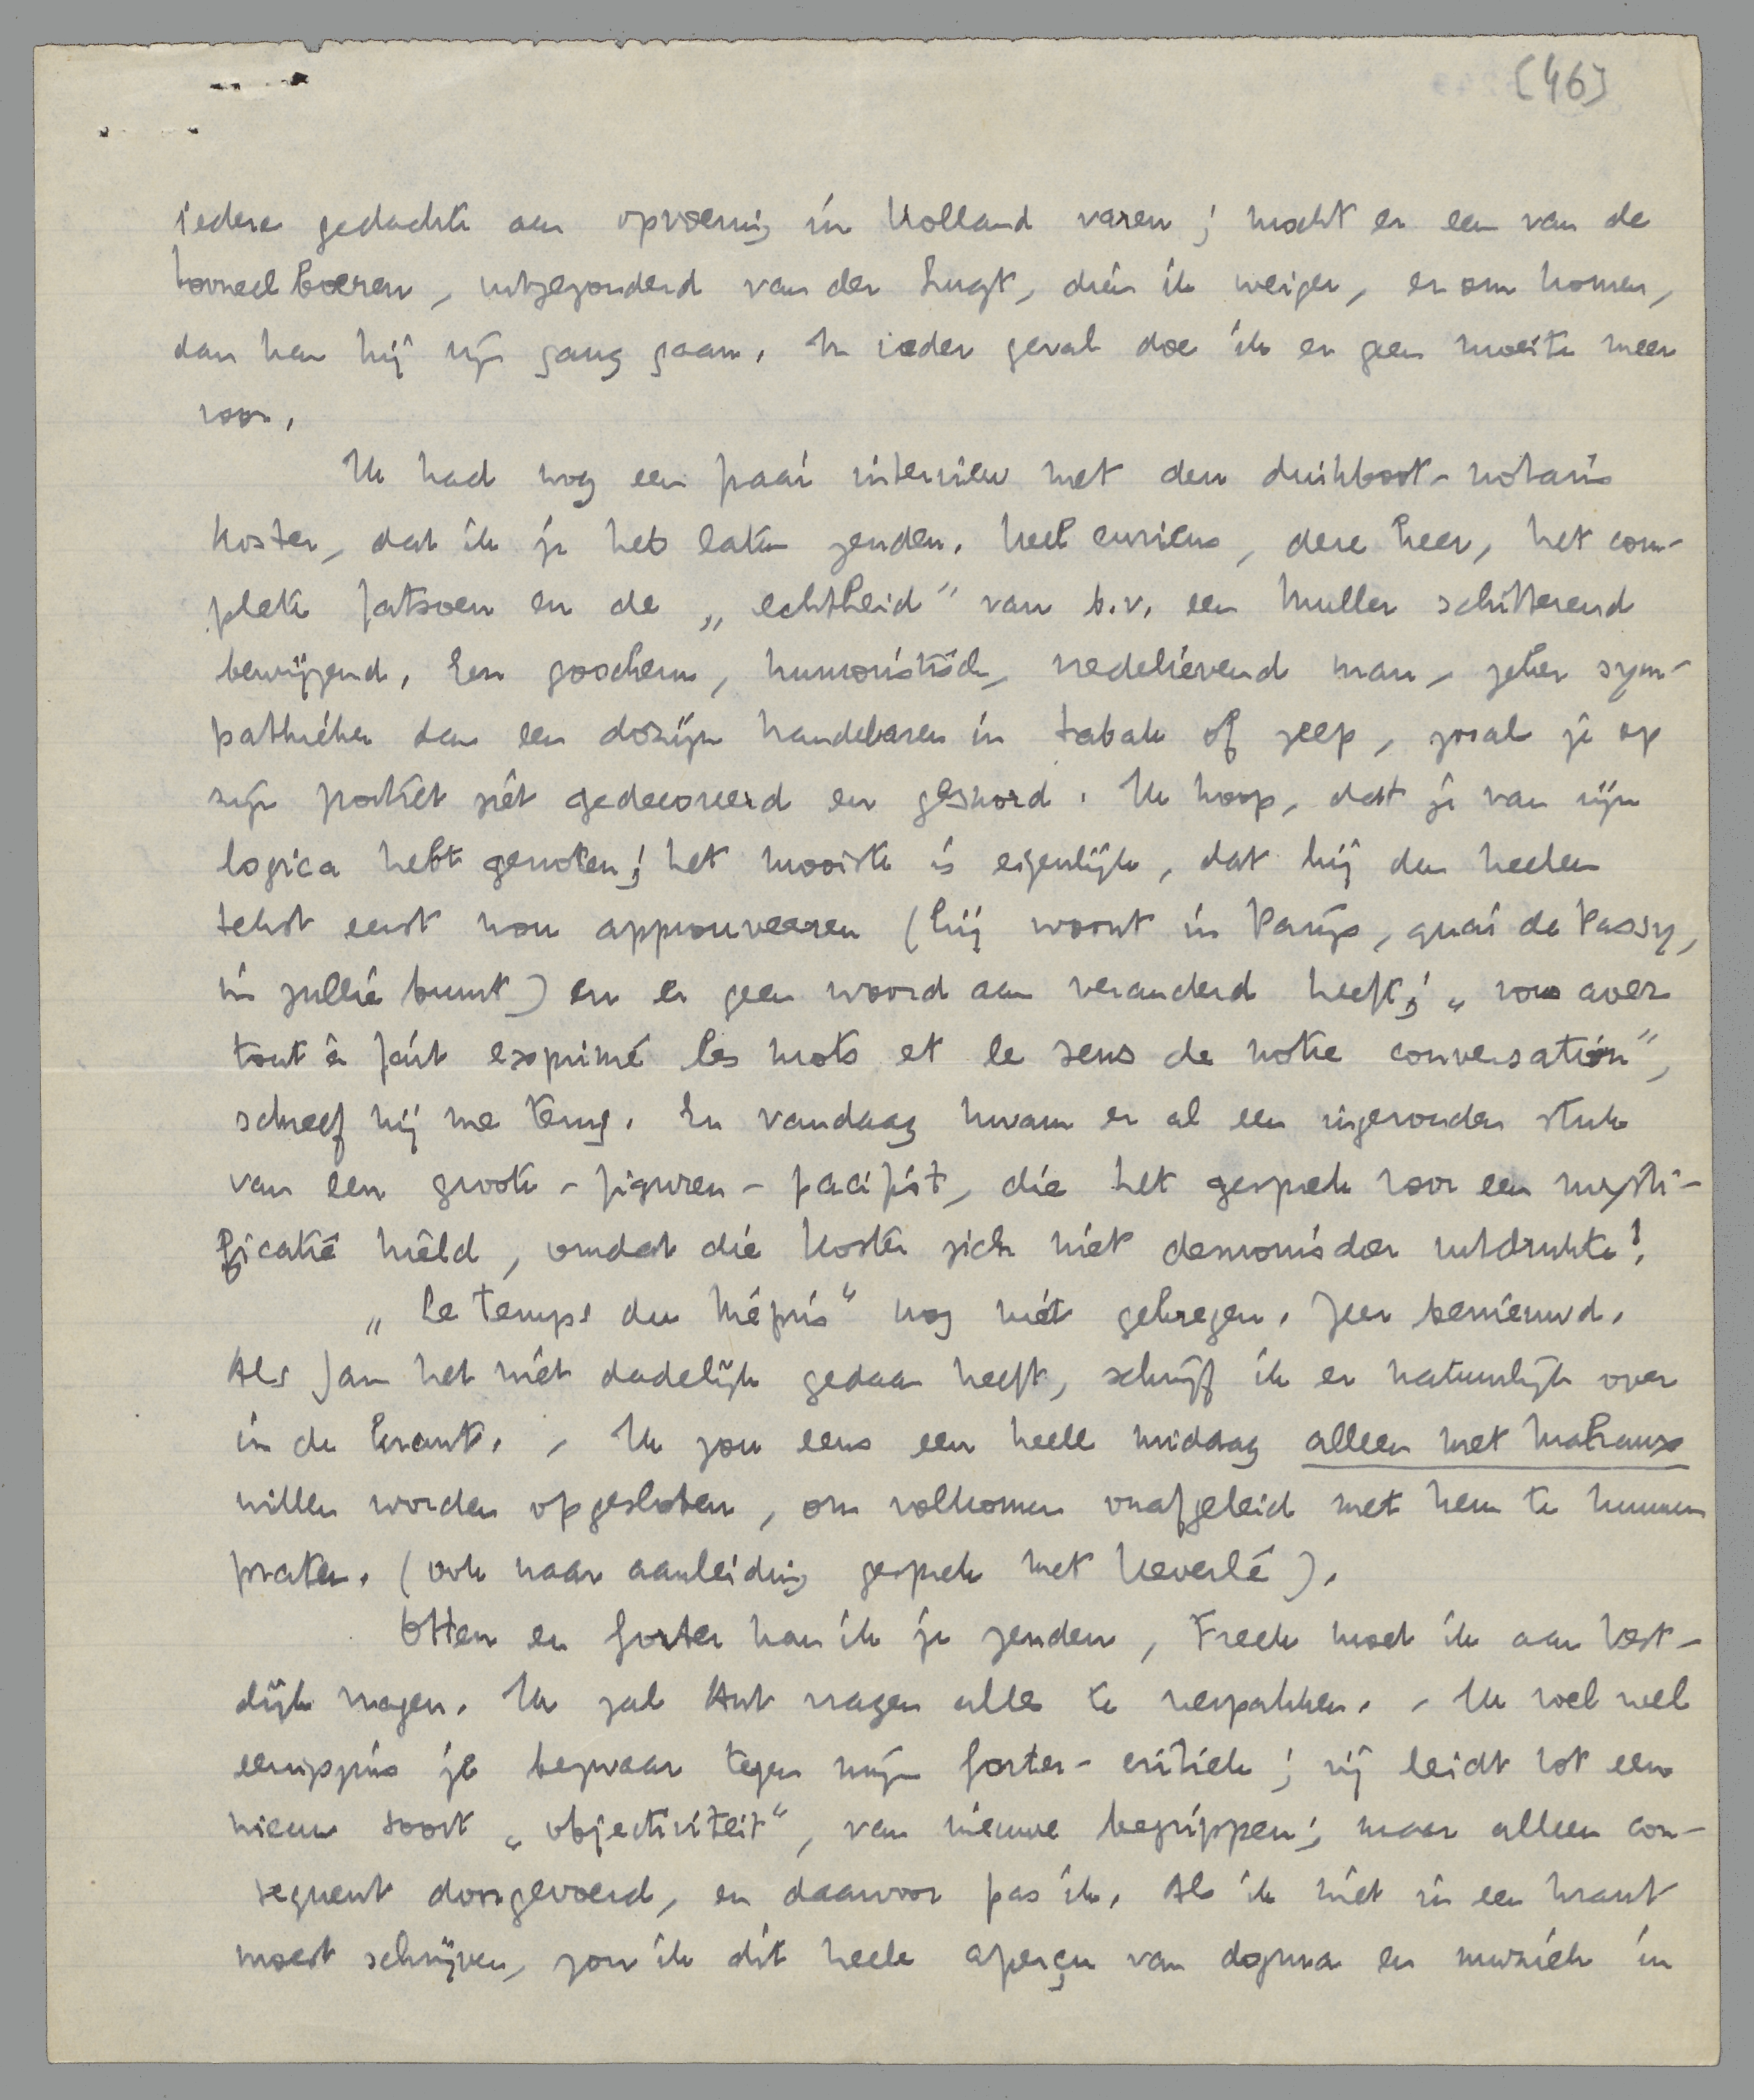 [46]
iedere gedachte aan opvoering in Holland varen; mocht er een van de
tooneelboeren, uitgezonderd van der Lugt, dien ik weiger, er om komen,
dan kan hij zijn gang gaan. In ieder geval doe ik er geen moeite meer
voor.
Ik had nog een fraai interview met den duikboot-notaris
Koster, dat ik je heb laten zenden. Heel curieus, deze heer, het com-
plete fatsoen en de „echtheid" van b.v. een Muller schitterend
bewijzend. Een goochem, humoristisch, vredelievend man, zeker sym-
pathieker dan een dozijn handelaren in tabak of zeep, zooals je op
zijn portret ziet gedecoreerd en gesnord. Ik hoop, dat je van zijn
logica hebt genoten; het mooiste is eigenlijk, dat hij den heelen
tekst eerst kon approuveeren (hij woont in Parijs, quai de Passy,
in jullie buurt) en er geen woord aan veranderd heeft; „vous avez
tout à fait exprimé les mots et le sens de notre conversation",
schreef hij me terug. En vandaag kwam er al een ingezonden stuk
van een groote-figuren-pacifist, die het gesprek voor een mysti-
ficatie hield, omdat die Koster zich niet demonischer uitdrukte!
„Le Temps du Mépris" nog niet gekregen. Zeer benieuwd.
Als Jan het niet dadelijk gedaan heeft, schrijf ik er natuurlijk over
in de krant. - Ik zou eens een heele middag alleen met Malraux
willen worden opgesloten, om volkomen onafgeleid met hem te kunnen
praten. (ook naar aanleiding gesprek met Keverlé).
Otten en Gorter kan ik je zenden, Freek moet ik aan Vest-
dijk vragen. Ik zal Ant vragen alles te verpakken. - Ik voel wel
eenigszins je bezwaar tegen mijn Gorter-critiek; zij leidt tot een
nieuw soort „objectiviteit", van nieuwe begrippen; maar alleen con-
sequent doorgevoerd, en daarvoor pas ik. Als ik niet in een krant
moest schrijven, zou ik dit heele aperçu van dogma en muziek in